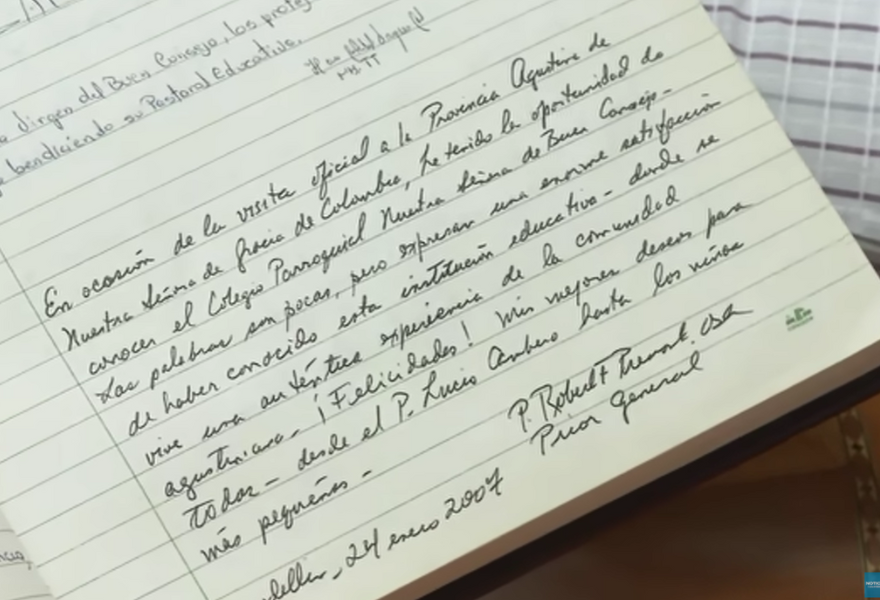 Virgen del Buen Consejo, los proteja
bendiciendo su Pastoral Educativa.
En ocasión de la visita oficial a la Provincia Agustina de
Nuestra Señora de Gracia de Colombia, he tenido la oportunidad de
conocer el Colegio Parroquial Nuestra Señora de Buen Consejo.
Las palabras son pocas, pero expresan una enorme satisfacción
de haber conocido esta institución educativa - donde se
vive una auténtica experiencia de la comunidad
agustiniana. ¡Felicidades! Mis mejores deseos para
todos - desde el P. Lucio hasta los niños
más pequeños -
P. Robert F. Prevost, OSA
Prior General
dellín, 24 enero 2007